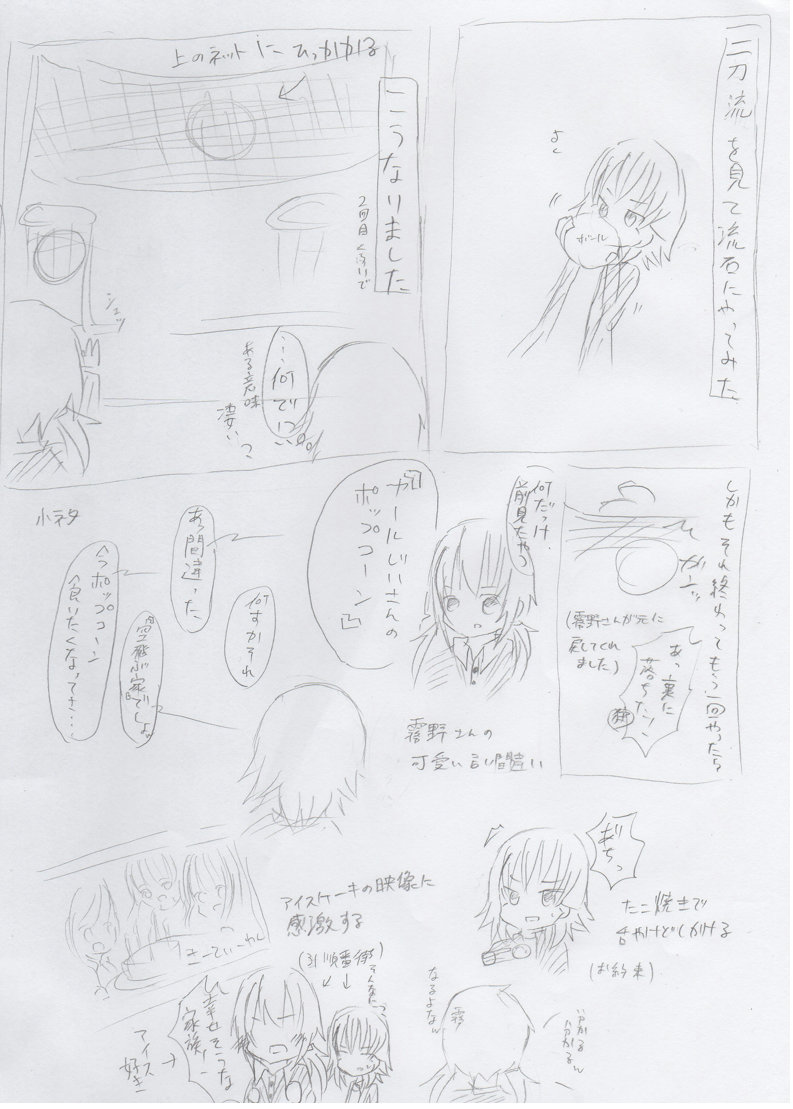 二刀流を見て流石にやってみた
よく
ボール
上のネットにひっかかる
こうなりました
2回目くらいで
シュッ
…何でについ
ある意味
凄い?
しかもそれ終わってもう一回やったら
ガーッ
(霧野さんが元に
戻してくれ
ました)
あっ裏に
落ちた!
何だっけ、
前見たやつ
『カールじいさんの
ポップコーン』
霧野さんの
可愛い言い間違い
小ネタ
何すかそれ
あっ間違った
空飛ぶ家でしょ
今ポップコーン
食いたくなってき…
あちっ
たこ焼きで
舌やけどしかける
(お約束)
分かる
分かるん
なるよなぁ
霧
アイスケーキの映像に
感激する
さーてぃーわん
幸せそうな
家族!
アイス
好き